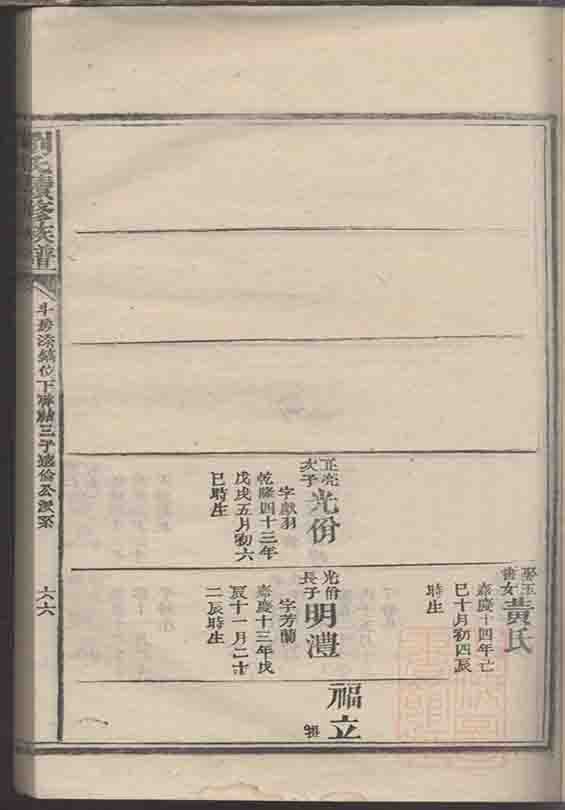 正亮
次子
光份
字獻羽
乾隆四十三年
戊戌五月初六
巳時生
娶玉
貴女
黄氏
嘉慶十四年己
巳十月初四辰
時生
光份
長子
明澧
字芳蘭
嘉慶十三年戊
辰十一月二十
二辰時生
福立
劉氏續修族譜
斗房添位下三子遠倫公派系
六六